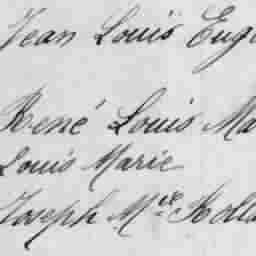 Jean Louis Eug
René Louis Ma
Louis Marie
Joseph Mie Rolla